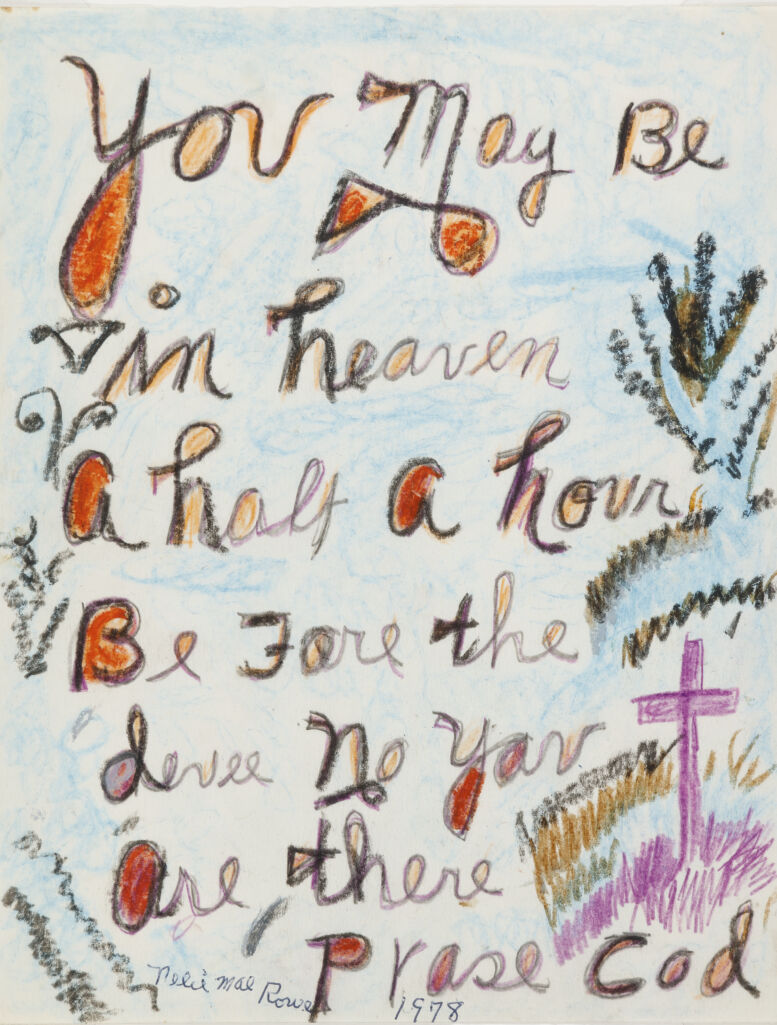 You May Be
in heaven
a half a hour
Be Fore the
devee No Yav
are there
Prase God
Nelie Mae Rowe 1978